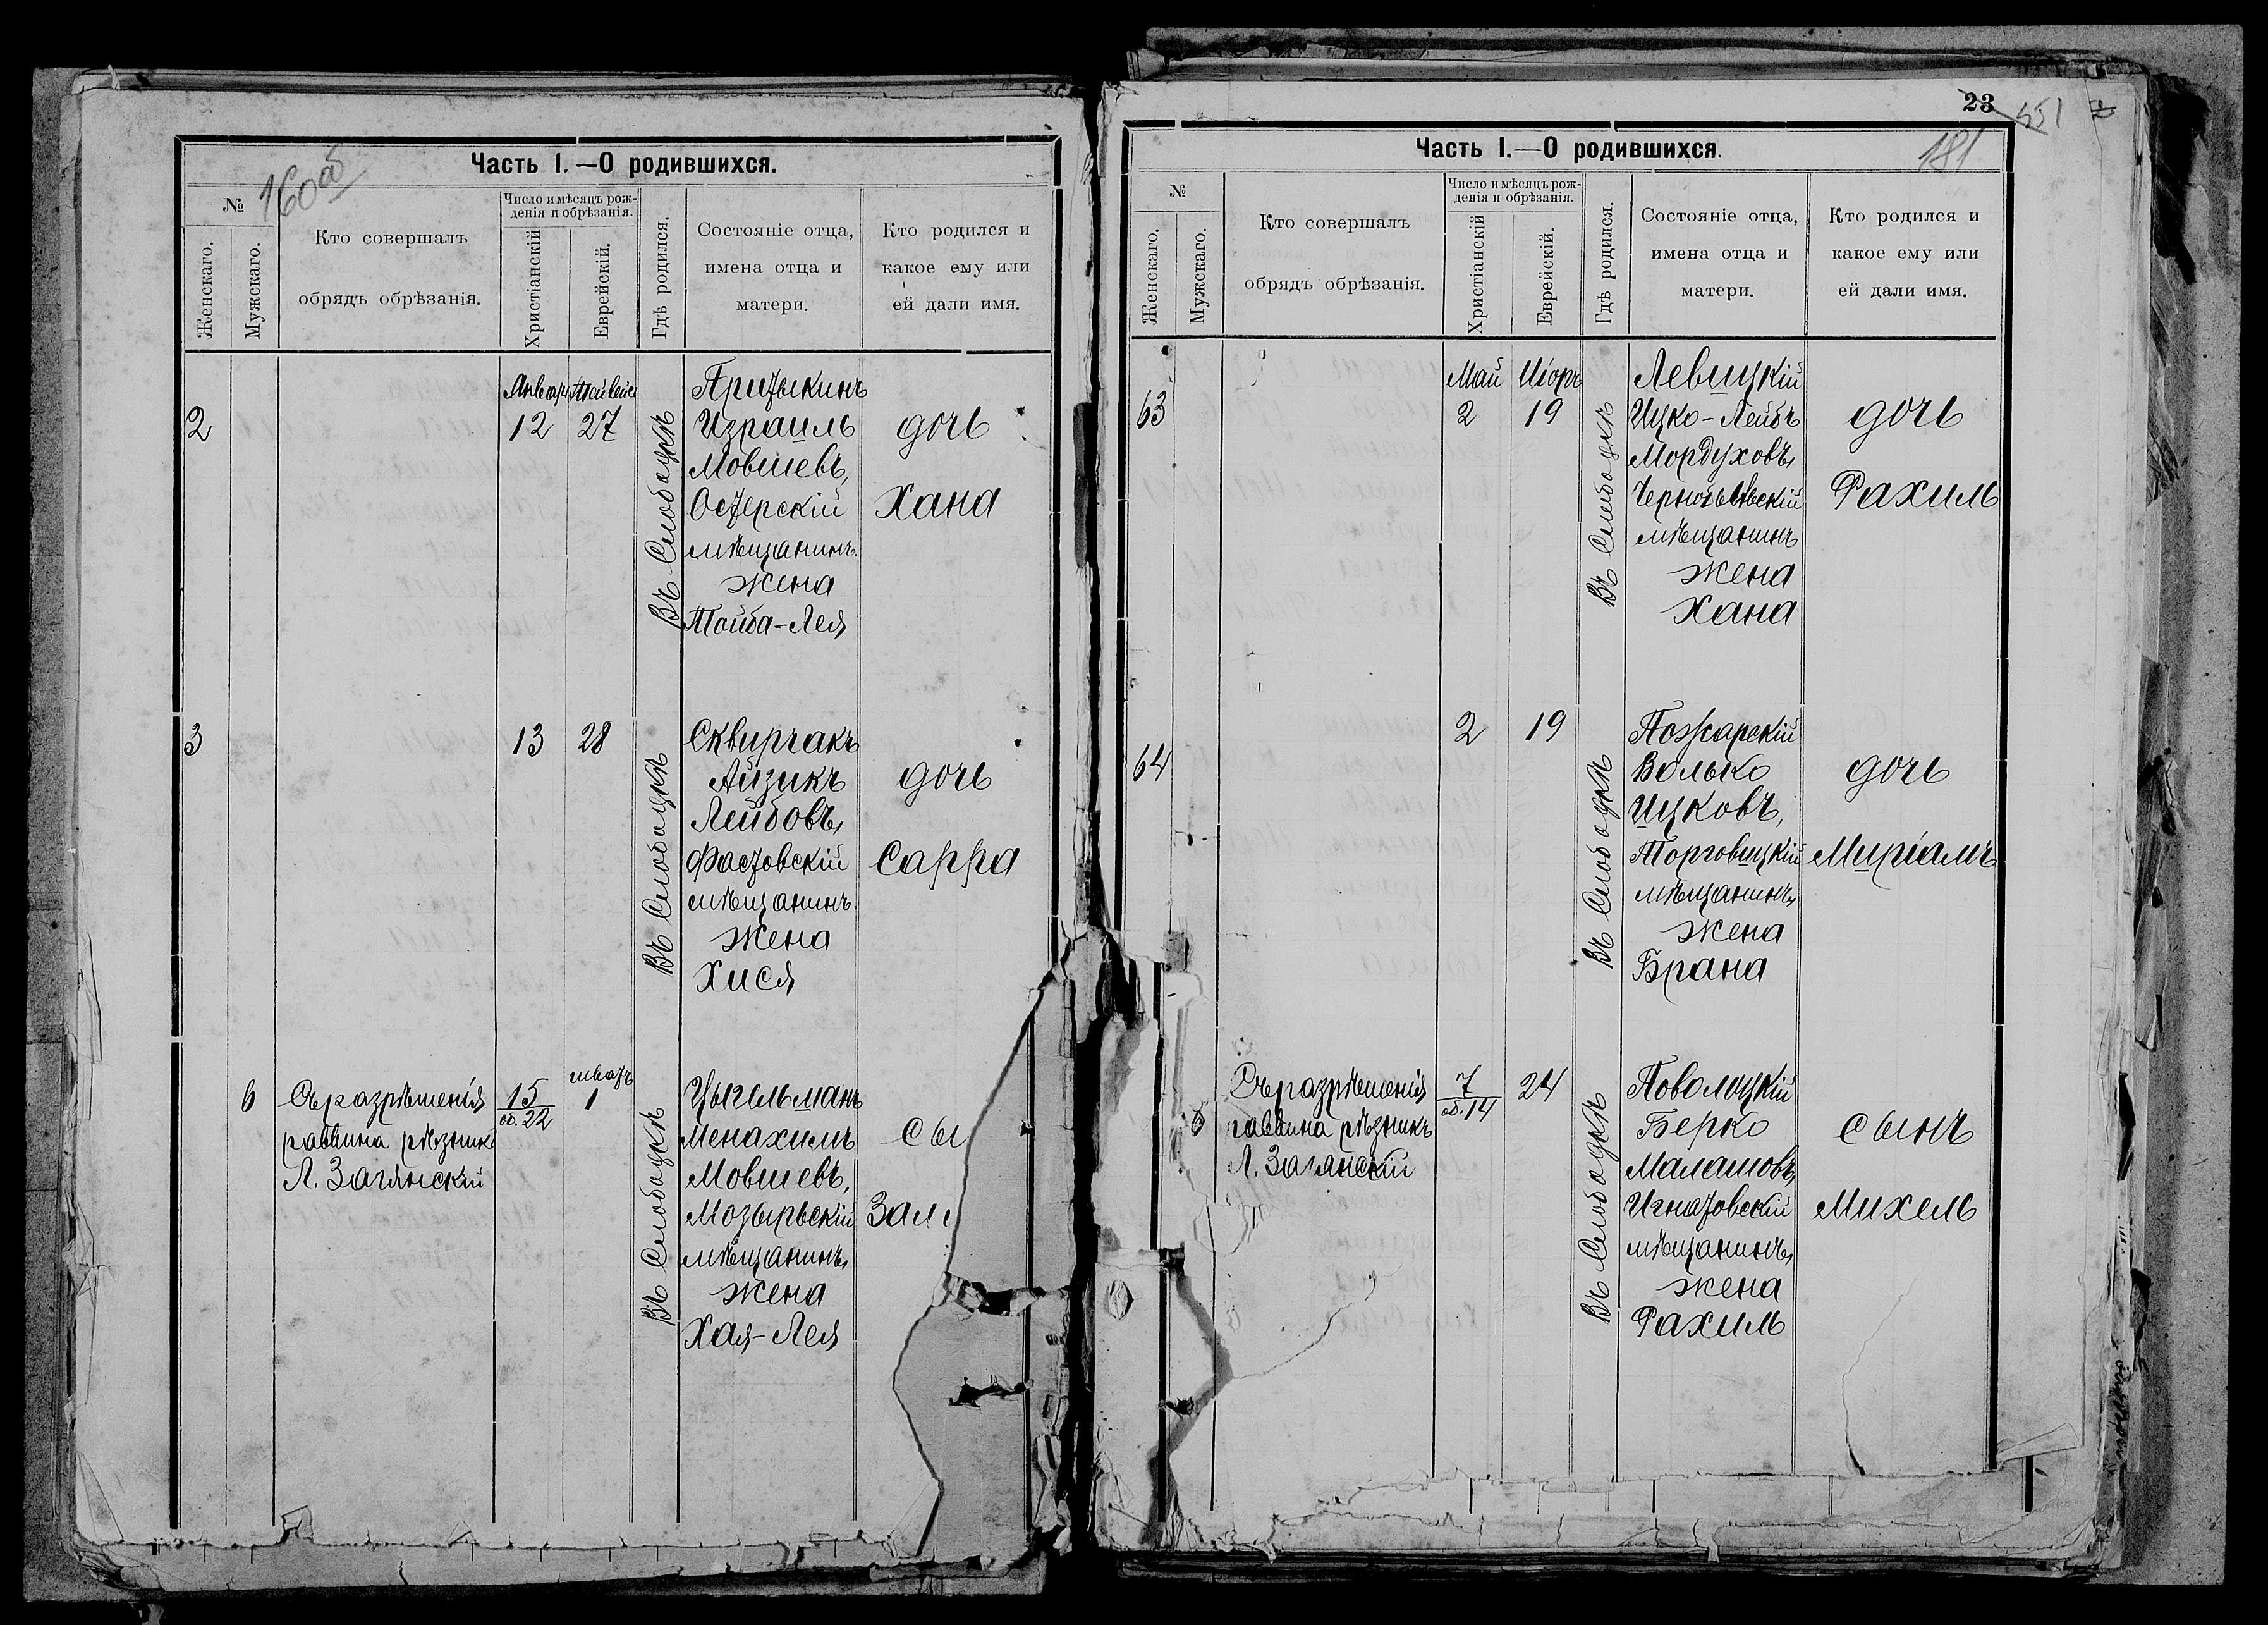 160об
Часть I.—О родившихся.
№
Женскаго.
Мужскаго.
Кто совершалъ
обрядъ обрѣзанія.
Число и мѣсяцъ рож-
денія и обрѣзанія.
Христіанскій
Еврейскій.
Гдѣ родился.
Состояніе отца,
имена отца и
матери.
Кто родился и
какое ему или
ей дали имя.
2
Январь
12
27
Въ Слободкѣ
Притыкинъ
Израиль
Мовшевъ,
Остерскій
мѣщанинъ.
жена
Тойба-Лея
дочь
Хана
3
13
28
Въ Слободкѣ
Сквирчакъ
Айзикъ
Лейбовъ,
Фастовскій
мѣщанинъ.
жена
Хися
дочь
Сарра
6
Съ разрѣшенія
раввина рѣзникъ
Л. Загянскій
15
об. 22
шватъ
1
Въ Слободкѣ
Цыгельманъ
Менахимъ
Мовшевъ,
Мозырьскій
мѣщанинъ,
жена
Хая-Лея
сы
Зал
23
551
181
Часть I.—О родившихся.
№
Женскаго.
Мужскаго.
Кто совершалъ
обрядъ обрѣзанія.
Число и мѣсяцъ рож-
денія и обрѣзанія.
Христіанскій
Еврейскій.
Гдѣ родился.
Состояніе отца,
имена отца и
матери.
Кто родился и
какое ему или
ей дали имя.
63
Май
2
Иіоръ
19
Въ Слободкѣ
Левицкій
Ицко-Лейбъ
Мордуховъ,
мѣщанинъ
жена
Хана
дочь
Рахиль
64
2
19
Въ Слободкѣ
Пожарскій
Волько
Ицковъ,
Торговицкій
мѣщанинъ,
жена
Брана
дочь
Миріамъ
Съ разрѣшенія
раввина рѣзникъ
Л. Загянскій
7
об. 14
24
Въ Слободкѣ
Поволоцкій
Берко
Малашовъ,
Игнатовскій
мѣщанинъ,
жена
Рахиль
сынъ
Михель